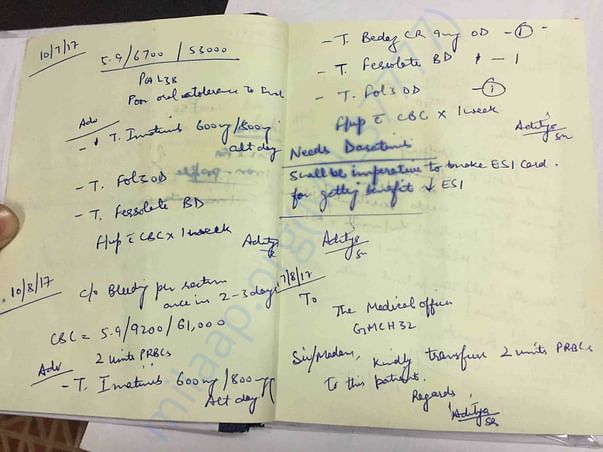 10/7/17
5.9/6700/53000
Poor oral tolerance to
Adv
- T. Imatinib 600mg/800mg
alt day
- T. Fol5 OD
- T. Fessolate BD
F/up c̄ CBC x 1 week
Aditya
10/8/17
c/o Bleeding per rectum
once in 2-3 days
CBC = 5.9/9200/61,000
Adv
2 units PRBCs
- T. Imatinib 600mg/800mg
Alt day
- T. CR 9mg OD - 1 -
- T. Fessolate BD 1 - 1
- T. Fol5 OD - 1
F/up c̄ CBC x 1 week
Aditya
SR
Needs Dasatinib
Shall be imperative to make ESI Card.
for getting benefit ESI
Aditya
SR
7/8/17
To
The Medical officer
GMCH32
Sir/Madam, Kindly transfuse 2 units PRBCs
to this patient.
Regards,
Aditya
SR
milaap.org